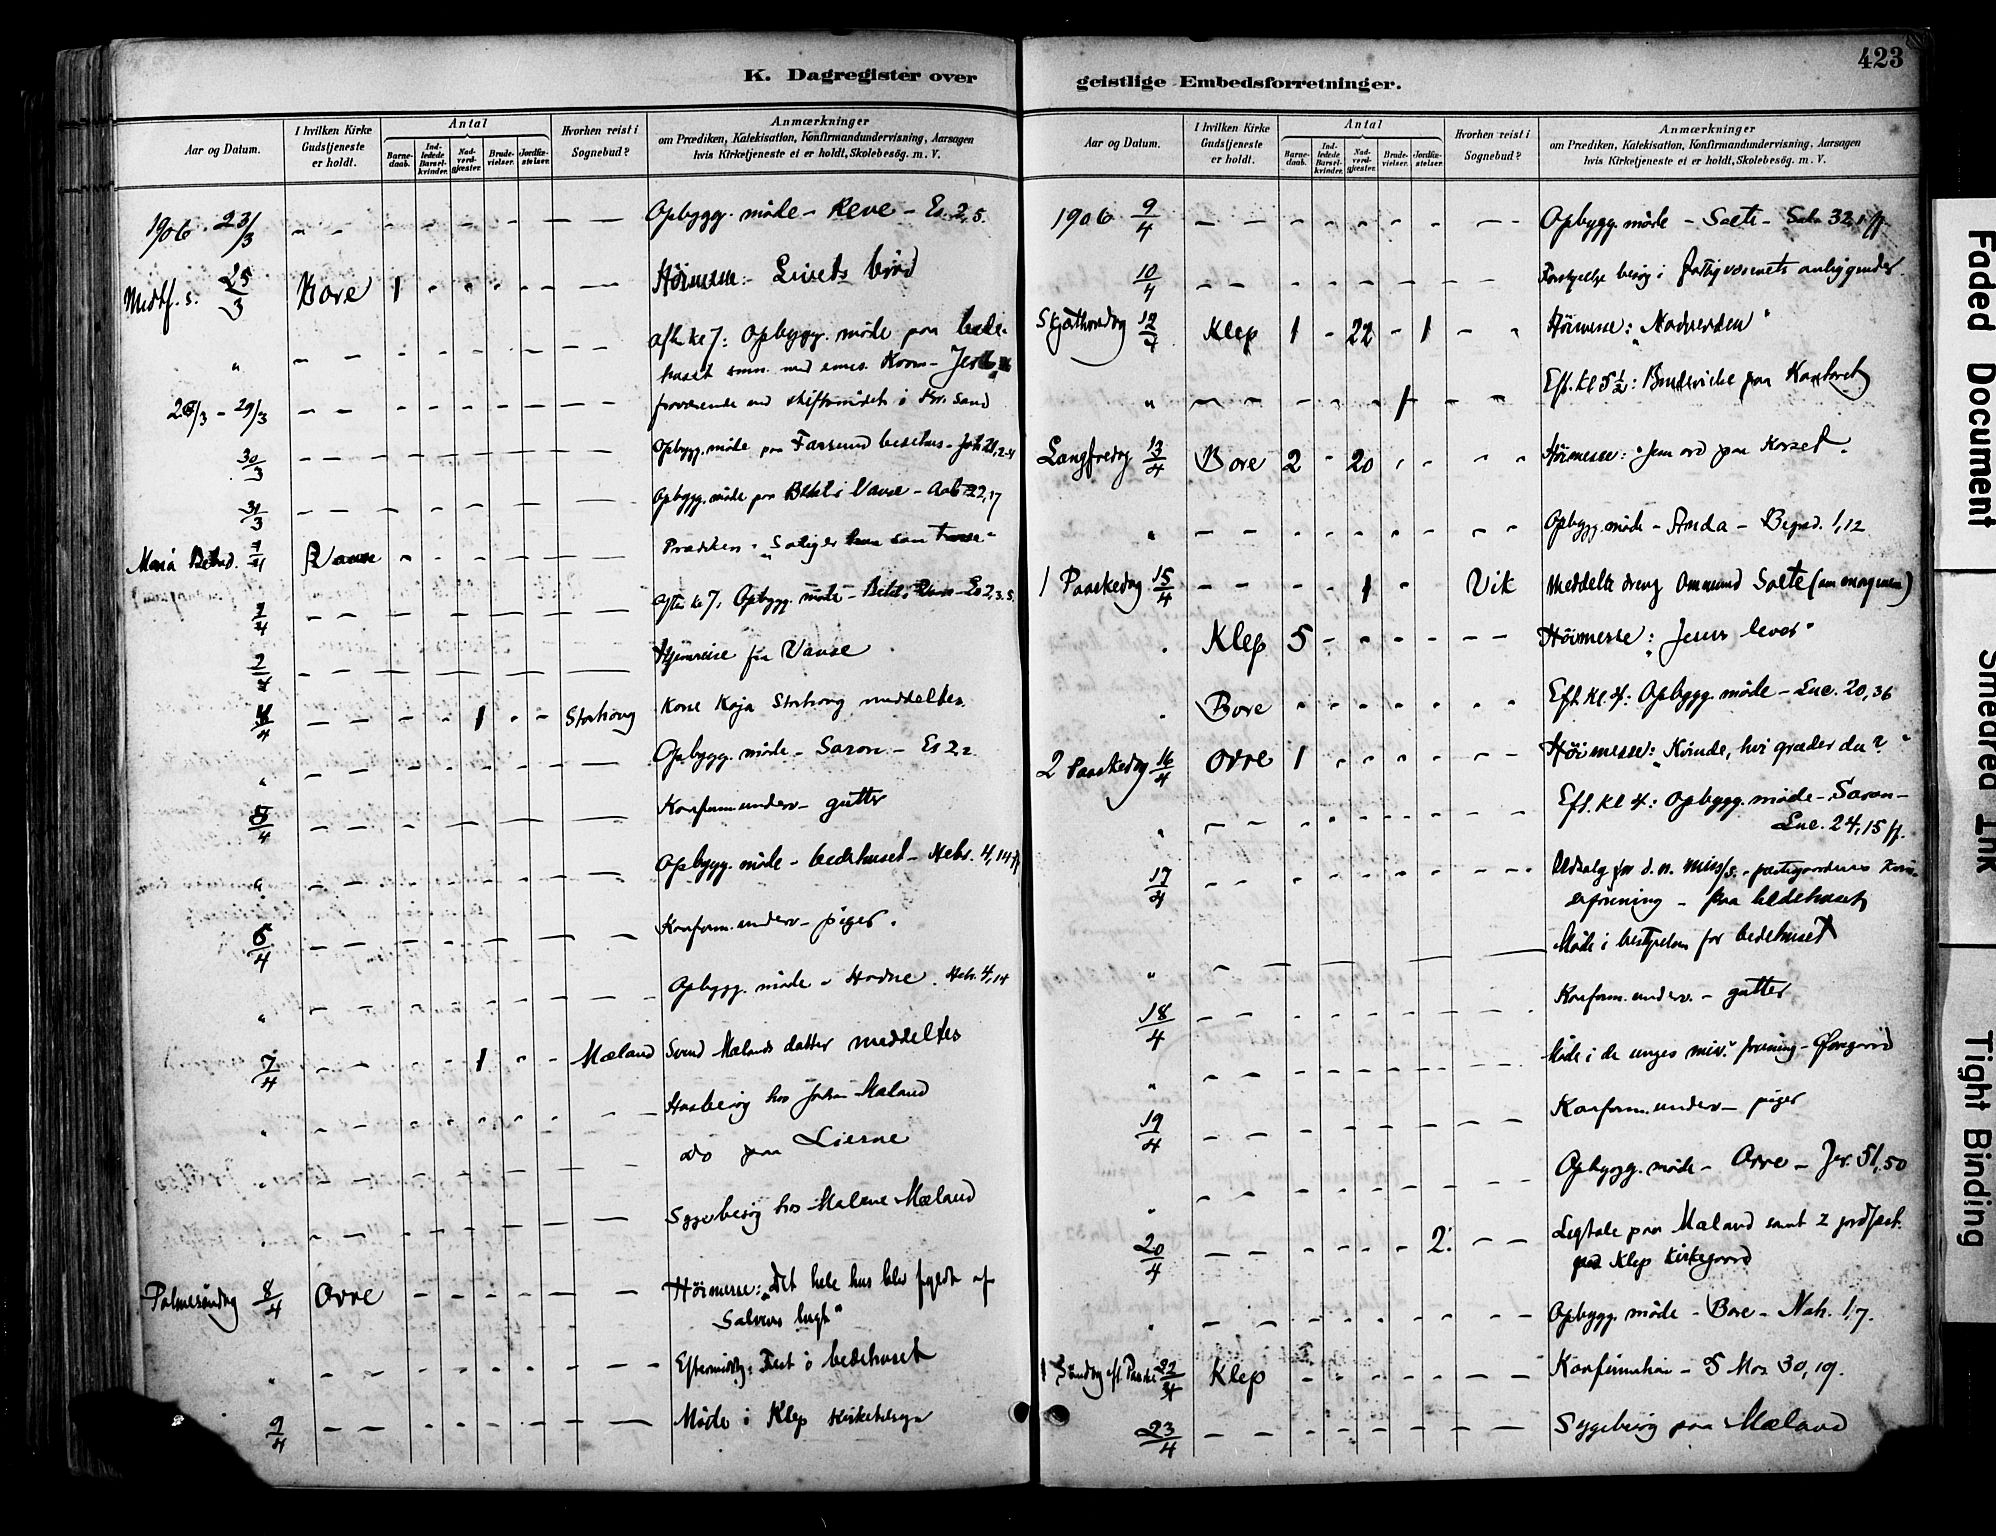 423
K. Dagregister over geistlige Embedsforretninger.
Aar og Datum.
I hvilken Kirke Gudstjeneste er holdt.
Antal
Barne-daab.
Ind-ledede Barsel-kvinder.
Nad-verd-gjæster.
Brude-vielser.
Jordfæ-stelser.
Hvorhen reist i Sognebud?
Anmærkninger
om Prædiken, Katekisation, Konfirmandundervisning, Aarsagen
hvis Kirketjeneste ei er holdt, Skolebesøg. m. V.
1906 23/3 Opbygg. møde - Reve - Es. 2,5.
Midtf. s. 25/3 Bore 1 Høimesse: Livets brød
" aft. kl 7: Opbygg. møde paa bede-
huset
26/3 - 29/3 fraværende
30/3 Opbygg. møde paa Farsund bedehus - Joh 21,2-4
31/3 Opbygg. møde paa Betel i Vanse - Aab 22,17
Mariæ Bebud. 1/4 Vanse Prædiken - "Salig er
1/4 Aften kl 7: Opbygg. møde -
2/4 Hjemreise fra Vanse
4/4 1 Storhoug Kone Kaja Storhoug meddeltes
" Opbygg. møde - Saron - Es 22
5/4 Konform. underv - gutter
" Opbygg. møde - bedehuset - Hebr. 4,14 ff
6/4 Konform. underv - piger.
" Opbygg. møde - Hodne. Hebr. 4,14
7/4 1 Mæland Svend Mælands datter meddeltes
" Husbesøg hos Mæland
do paa Lierne
" Sygebesøg hos Malene Mæland
Palmesøndag 8/4 Orre Høimesse: "Det hele hus blev fyldt af
Salvens lugt"
" Eftermiddg: Fest i bedehuset
9/4 Møde i Klep kirketilsyn
Aar og Datum.
I hvilken Kirke Gudstjeneste er holdt.
Antal
Barne-daab.
Ind-ledede Barsel-kvinder.
Nad-verd-gjæster.
Brude-vielser.
Jordfæ-stelser.
Hvorhen reist i Sognebud?
Anmærkninger
om Prædiken, Katekisation, Konfirmandundervisning, Aarsagen
hvis Kirketjeneste ei er holdt, Skolebesøg. m. V.
1906 9/4 Opbygg. møde - Sæte - Salm 32,1 ff
10/4 Forskjellige besøg i fattigvæsenets anliggender
Skjærthorsdag 12/4 Klep 1 22 1 Høimesse: "Nadverden"
" 1 Eft. kl 5 1/2: Brudevielse paa Kontoret
Langfredag 13/4 Bore 2 20 Høimesse: "Jesu ord paa Korset".
" Opbygg. møde - Anda - 1,12
1 Paaskedag 15/4 1 Vik Meddelte dreng Ommund Sæte (om morgenen)
" Klep 5 Høimesse: "Jesus lever"
" Bore Eft. kl. 4: Opbygg. møde - Luc. 20,36
2 Paaskedag 16/4 Orre 1 Høimesse: "Kvinde, hvi græder du?"
" Eft. kl 4: Opbygg. møde - Saron -
Luc. 24,15 ff.
17/4 Udsalg for d. n. miss/s. - præstegaardens
forening - paa bedehuset
" Møde i bestyrelsen for bedehuset
18/4 Konform. underv. - gutter
" Møde i de unges miss. forening - Øxnevad
19/4 Konform. underv - piger
" Opbygg. møde - Orre - Jer. 51,50
20/4 2 Ligtale paa Mæland samt 2 jordfæst.
paa Klep kirkegaard
" Opbygg. møde - Bore - Nah. 1,7.
1 Søndag eft. Paaske 22/4 Klep Konfirmation - 5 Mos 30,19.
23/4 Sygebesøg paa Mæland
Faded Document
Smeared Ink
Tight Binding